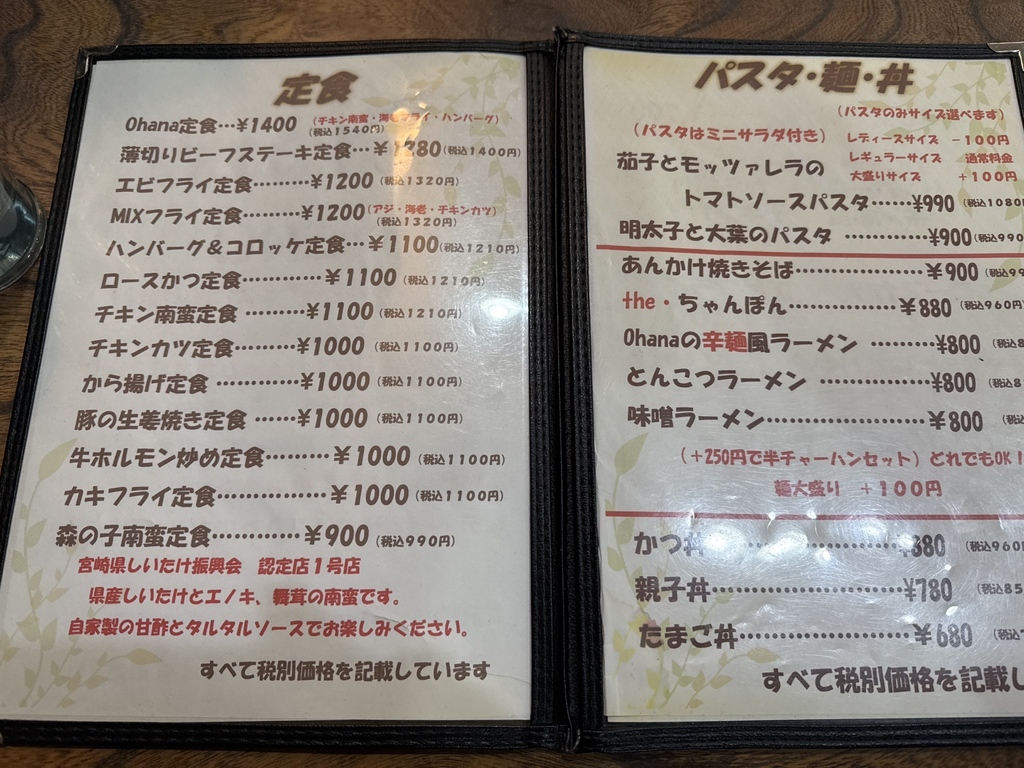 定食
Ohana定食…¥1400 (チキン南蛮・海老フライ・ハンバーグ)
(税込1540円)
薄切りビーフステーキ定食…¥1280(税込1400円)
エビフライ定食………¥1200(税込1320円)
MIXフライ定食………¥1200(アジ・海老・チキンカツ)
(税込1320円)
ハンバーグ&コロッケ定食…¥1100(税込1210円)
ロースかつ定食…………¥1100(税込1210円)
チキン南蛮定食…………¥1100(税込1210円)
チキンカツ定食…………¥1000(税込1100円)
から揚げ定食…………¥1000(税込1100円)
豚の生姜焼き定食……¥1000(税込1100円)
牛ホルモン炒め定食………¥1000(税込1100円)
カキフライ定食……………¥1000(税込1100円)
森の子南蛮定食…………¥900(税込990円)
宮崎県しいたけ振興会 認定店1号店
県産しいたけとエノキ、舞茸の南蛮です。
自家製の甘酢とタルタルソースでお楽しみください。
すべて税別価格を記載しています
パスタ・麺・丼
(パスタのみサイズ選べます)
(パスタはミニサラダ付き)
レディースサイズ -100円
レギュラーサイズ 通常料金
大盛りサイズ +100円
茄子とモッツァレラの
トマトソースパスタ……¥990(税込1080
明太子と大葉のパスタ…………¥900(税込990
あんかけ焼きそば……………¥900(税込99
the・ちゃんぽん…………¥880(税込960円
Ohanaの辛麺風ラーメン………¥800(税込8
とんこつラーメン…………¥800(税込8
味噌ラーメン………………¥800(税込8
(+250円で半チャーハンセット)どれでもOK!
麺大盛り +100円
かつ丼………………¥880(税込960
親子丼………………¥780(税込85
たまご丼………………¥680(税込
すべて税別価格を記載し